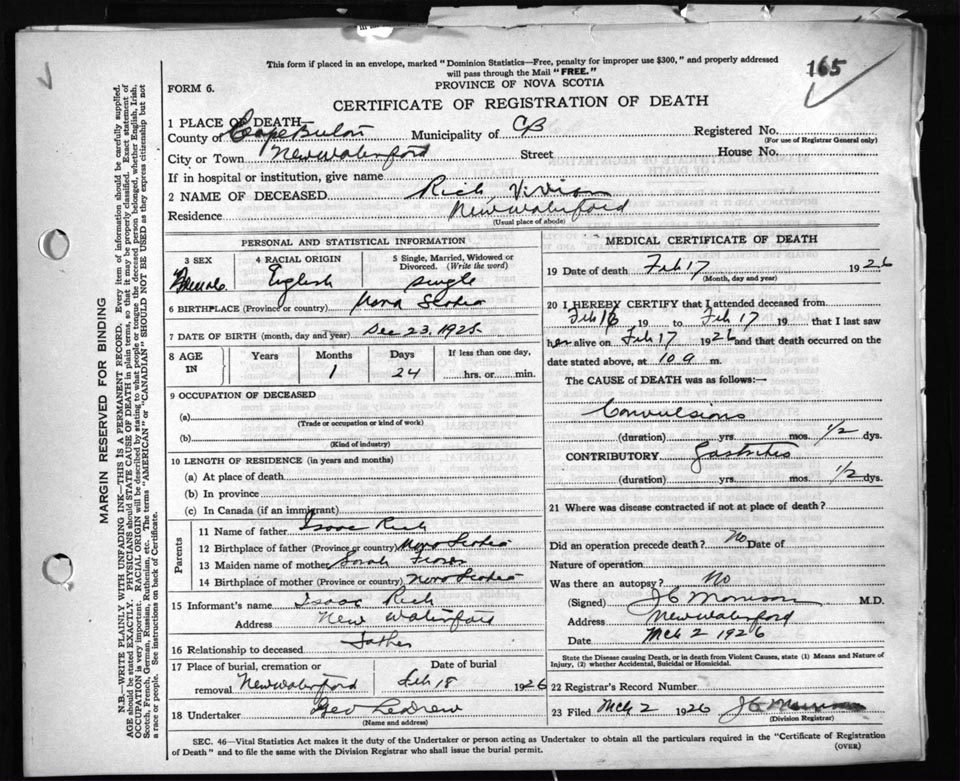 165
This form if placed in an envelope, marked "Dominion Statistics—Free, penalty for improper use $300," and properly addressed
will pass through the Mail "FREE."
FORM 6.
PROVINCE OF NOVA SCOTIA
CERTIFICATE OF REGISTRATION OF DEATH
1 PLACE OF DEATH—
County of Cape Breton Municipality of CB Registered No.
(For use of Registrar General only)
City or Town New Waterford Street House No.
If in hospital or institution, give name
2 NAME OF DECEASED Rich Vivian
Residence New Waterford
(Usual place of abode)
PERSONAL AND STATISTICAL INFORMATION
3 SEX 4 RACIAL ORIGIN 5 Single, Married, Widowed or
Divorced. (Write the word)
Female English Single
6 BIRTHPLACE (Province or country) Nova Scotia
7 DATE OF BIRTH (month, day and year) Dec 23, 1925
8 AGE IN Years Months Days If less than one day,
1 24 hrs. or min.
9 OCCUPATION OF DECEASED
(a)
(Trade or occupation or kind of work)
(b)
(Kind of industry)
10 LENGTH OF RESIDENCE (in years and months)
(a) At place of death
(b) In province
(c) In Canada (if an immigrant)
Parents
11 Name of father Isaac Rich
12 Birthplace of father (Province or country) Nova Scotia
13 Maiden name of mother Sarah
14 Birthplace of mother (Province or country) Nova Scotia
15 Informant's name Isaac Rich
Address New Waterford
16 Relationship to deceased Father
17 Place of burial, cremation or Date of burial
removal New Waterford Feb 18 1926
18 Undertaker Geo LeDrew
(Name and address)
MEDICAL CERTIFICATE OF DEATH
19 Date of death Feb 17 1926
(Month, day and year)
20 I HEREBY CERTIFY that I attended deceased from
Feb 16 19 to Feb 17 19 that I last saw
her alive on Feb 17 1926 and that death occurred on the
date stated above, at 10 a m.
The CAUSE of DEATH was as follows:—
Convulsions
(duration) yrs. mos. 1/2 dys.
CONTRIBUTORY Gastritis
(duration) yrs. mos. 1/2 dys.
21 Where was disease contracted if not at place of death?
Did an operation precede death? No Date of
Nature of operation
Was there an autopsy? No
(Signed) J C Morrison M.D.
Address New Waterford
Date Mch 2 1926
State the Disease causing Death, or in death from Violent Causes, state (1) Means and Nature of
Injury, (2) whether Accidental, Suicidal or Homicidal.
22 Registrar's Record Number
23 Filed Mch 2 1926 J C Morrison
(Division Registrar)
SEC. 46—Vital Statistics Act makes it the duty of the Undertaker or person acting as Undertaker to obtain all the particulars required in the "Certificate of Registration
of Death" and to file the same with the Division Registrar who shall issue the burial permit.
(OVER)
MARGIN RESERVED FOR BINDING
N.B.—WRITE PLAINLY WITH UNFADING INK—THIS IS A PERMANENT RECORD. Every item of information should be carefully supplied.
AGE should be stated EXACTLY. PHYSICIANS should STATE CAUSE OF DEATH in plain terms, so that it may be properly classified. Exact statement of
OCCUPATION is very important. RACIAL ORIGIN will be described by stating to what people or tongue the deceased person belonged, whether English, Irish,
Scotch, French, German, Russian, Ruthenian, etc. The terms "AMERICAN" or "CANADIAN" SHOULD NOT BE USED as they express citizenship but not
a race or people. See instructions on back of Certificate.